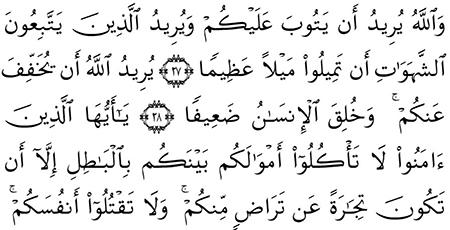 وَٱللَّهُ يُرِيدُ أَن يَتُوبَ عَلَيْكُمْ وَيُرِيدُ ٱلَّذِينَ يَتَّبِعُونَ
ٱلشَّهَوَٰتِ أَن تَمِيلُوا۟ مَيْلًا عَظِيمًا ﴿٢٧﴾ يُرِيدُ ٱللَّهُ أَن يُخَفِّفَ
عَنكُمْ ۚ وَخُلِقَ ٱلْإِنسَٰنُ ضَعِيفًا ﴿٢٨﴾ يَٰٓأَيُّهَا ٱلَّذِينَ
ءَامَنُوا۟ لَا تَأْكُلُوٓا۟ أَمْوَٰلَكُم بَيْنَكُم بِٱلْبَٰطِلِ إِلَّآ أَن
تَكُونَ تِجَٰرَةً عَن تَرَاضٍ مِّنكُمْ ۚ وَلَا تَقْتُلُوٓا۟ أَنفُسَكُمْ ۚ